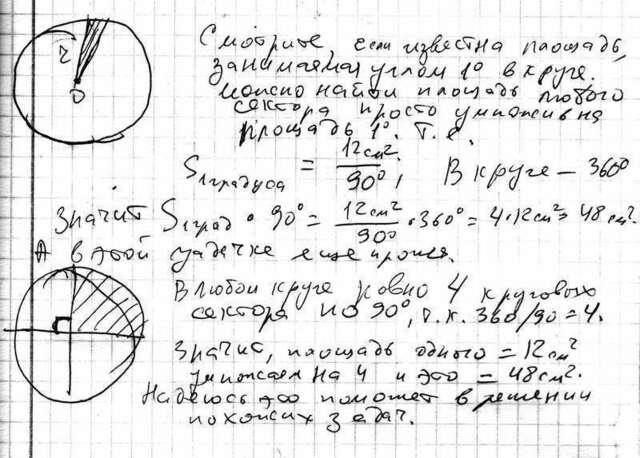 r
O
Смотрите, если известна площадь,
занимаемая углом 1° в круге.
можно найти площадь любого
сектора просто умножив на
площадь 1°. Т.е.
S1градуса = 12см²/90°, В круге – 360°
Значит S1град · 90° = 12см²/90° · 360° = 4·12см² = 48см².
А в этой задачке еще проще.
В любом круге ровно 4 круговых
сектора по 90°, т.к. 360/90 = 4.
Значит, площадь одного = 12см²
умножаем на 4 и это = 48см².
Надеюсь это поможет в решении
похожих задач.